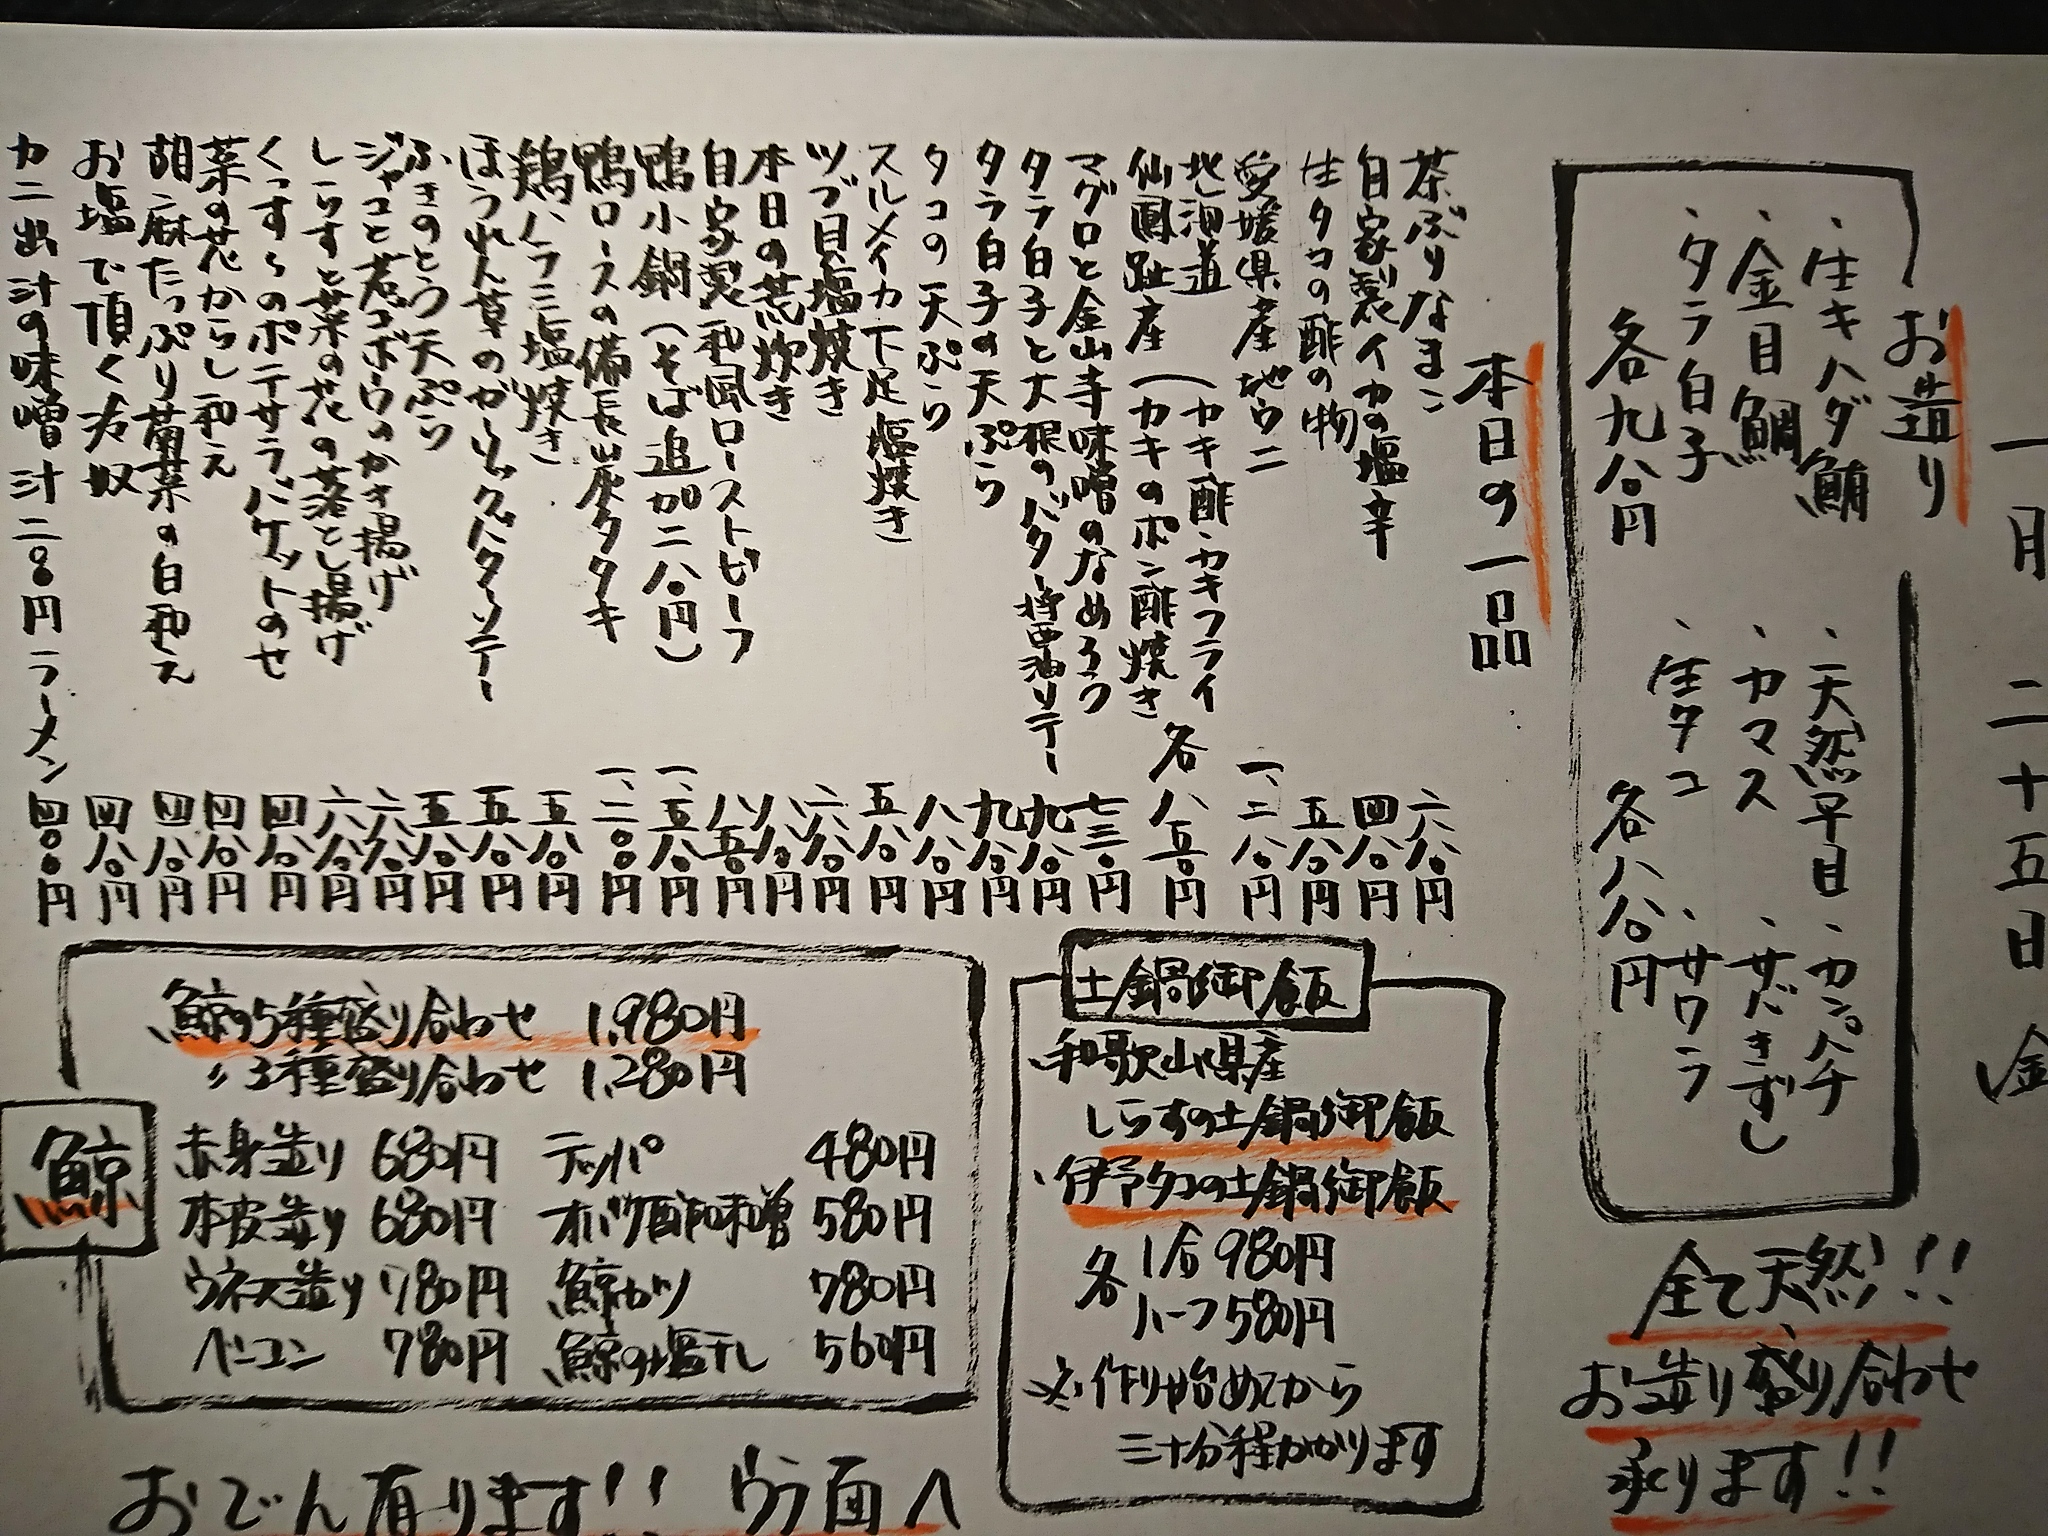 一月二十五日金
お造り
・生キハダ鮪
・金目鯛
・タラ白子
各九八〇円
・天然平目
・カンパチ
・カマス
・サバきずし
・生タコ
・サワラ
各八八〇円
全て天然!!
お造り盛り合わせ
承ります!!
本日の一品
茶ぶりなまこ 六八〇円
自家製イカの塩辛 四八〇円
生タコの酢の物 五八〇円
愛媛県産地ウニ 一、二八〇円
仙鳳趾産(カキ酢・カキフライ
(カキのポン酢焼き 各八五〇円
マグロと金山寺味噌のなめろう 七三〇円
タラ白子と大根のバター醤油ソテー 九八〇円
タラ白子の天ぷら 九八〇円
タコの天ぷら 八八〇円
スルメイカ下足塩焼き 五八〇円
ツブ貝塩焼き 六八〇円
本日の荒炊き 八八〇円
自家製和風ローストビーフ 八五〇円
鴨小鍋(そば追加二八〇円) 一、五八〇円
鴨ロースの備長炭タタキ 一、二〇〇円
鶏ハラミ塩焼き 五八〇円
ほうれん草のガーリックバターソテー 五八〇円
ふきのとう天ぷら 五八〇円
ジャコと若ゴボウのかき揚げ 六八〇円
しらすと菜の花の落とし揚げ 六八〇円
くっすんのポテサラ、バケットのせ 四八〇円
菜の花からし和え 四八〇円
胡麻たっぷり菊菜の白和え 四八〇円
お塩で頂く冷奴 四八〇円
カニ出汁の味噌汁二〇〇円ラーメン 四〇〇円
土鍋御飯
・和歌山県産
しらすの土鍋御飯
・伊予タコの土鍋御飯
各 1合 980円
ハーフ 580円
※作り始めてから
三十分程かかります
鯨
鯨の5種盛り合わせ 1,980円
〃3種盛り合わせ 1,280円
赤身造り 680円 テッパ 480円
本皮造り 680円 オバケ酢味噌 580円
ウネス造り 780円 鯨カツ 780円
ベーコン 780円 鯨の塩干し 560円
おでん有ります!! ウラ面へ